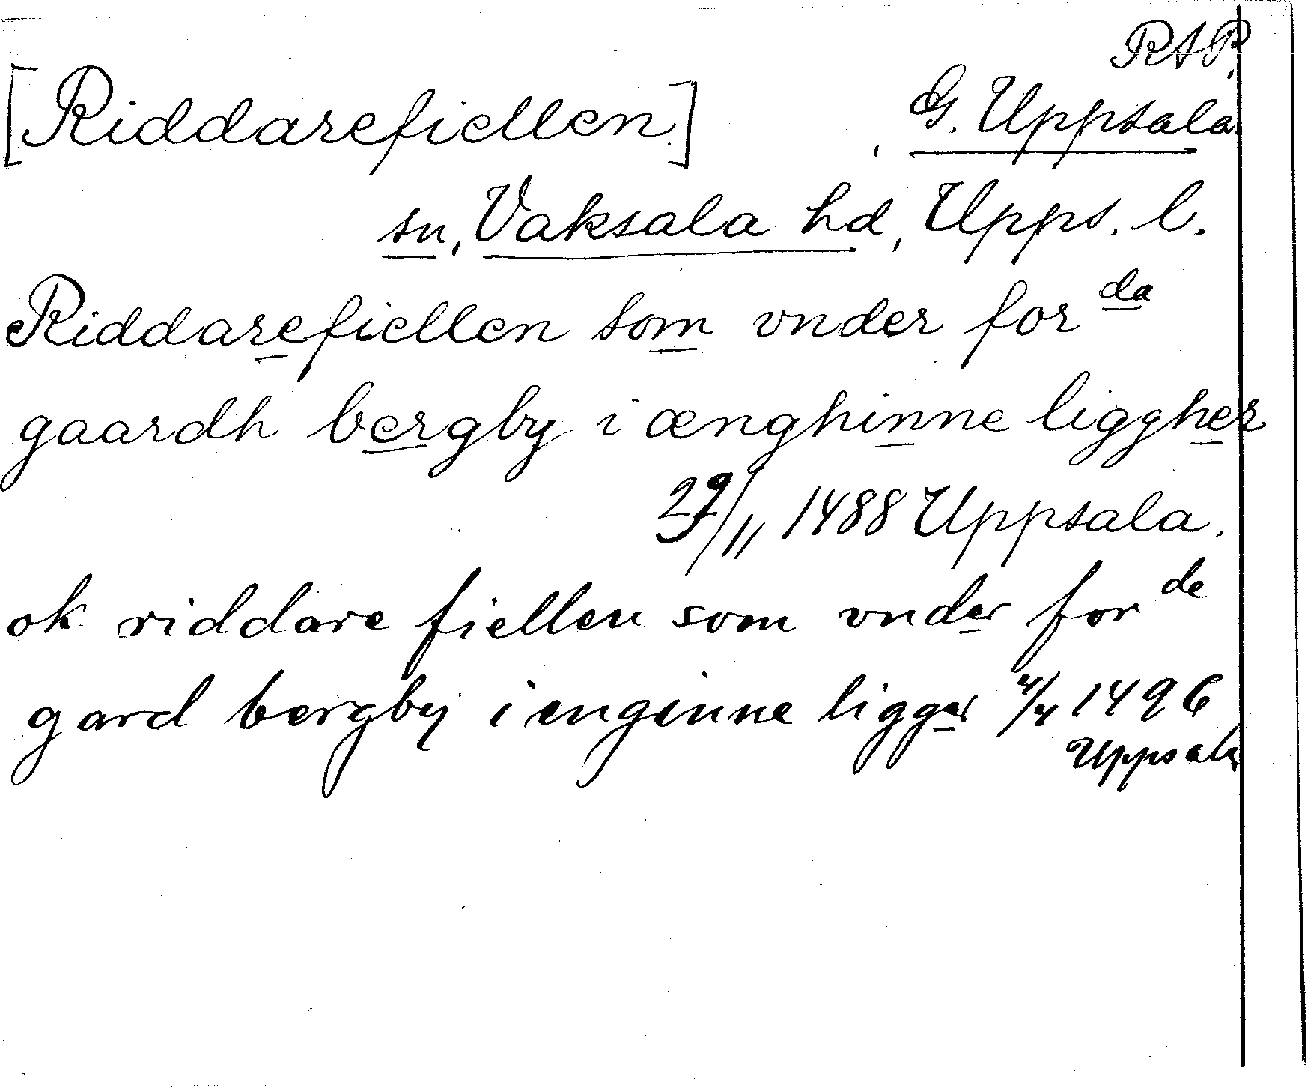 RAP.
[Riddarefiellen] G. Uppsala
sn, Vaksala hd, Upps. l.
Riddarefiellen som vnder for da
gaardh bergby i ænghinne liggher
29/11 1488 Uppsala.
ok riddare fiellen som vnder for de
gard bergby i enginne ligger 4/4 1496
Uppsala